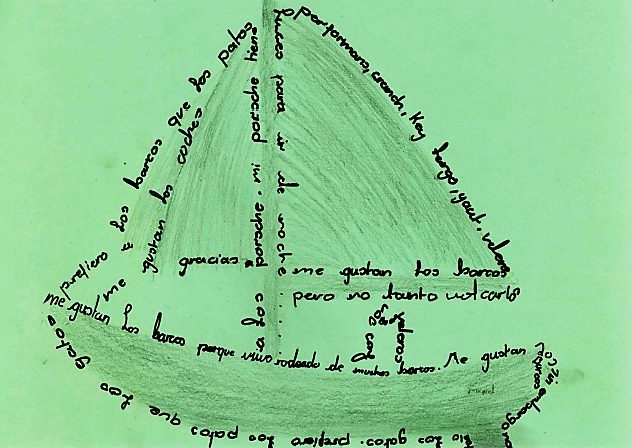 prefiero los barcos que los patos
me gustan los coches
gracias
porsche. mi porsche tiene
luces para ir de noche
performans, crench, Key largo, yaut, velero
me gustan los barcos
pero no tanto volcarlos
me gustan los barcos porque vivo rodeado de muchos barcos. Me gustan
sin embargo no
los gatos. prefiero los patos que los gatos